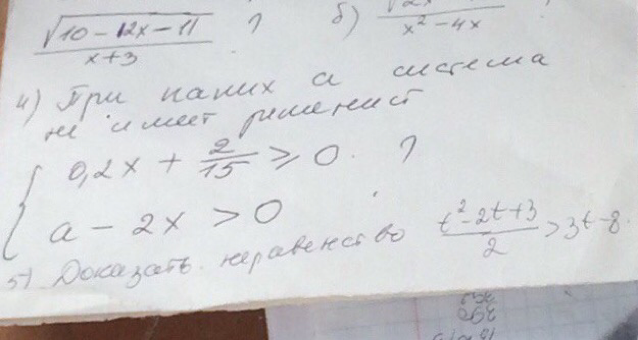 √(10 - |2x - 1|) / (x + 3) ? б)
x² - 4x
4) При каких a система
не имеет решений
{ 0,2x + 2/15 ≥ 0 . ?
a - 2x > 0
5) Доказать неравенство (t² - 2t + 3)/2 > 3t - 8.